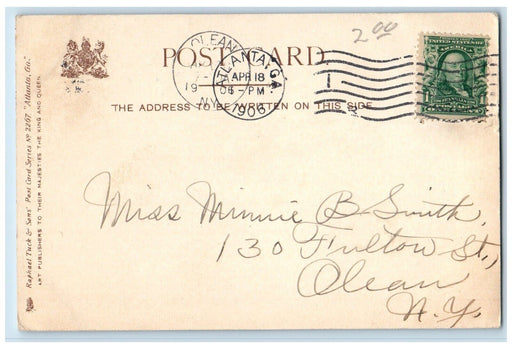 2.00
POST CARD.
OLEAN
N.Y.
ATLANTA, GA.
APR 18
6-PM
1906
THE ADDRESS TO BE WRITTEN ON THIS SIDE
Raphael Tuck & Sons' Post Card Series No 2267 "Atlanta, Ga."
ART PUBLISHERS TO THEIR MAJESTIES THE KING AND QUEEN.
Miss Minnie B Smith,
130 Fulton St.,
Olean
N.Y.